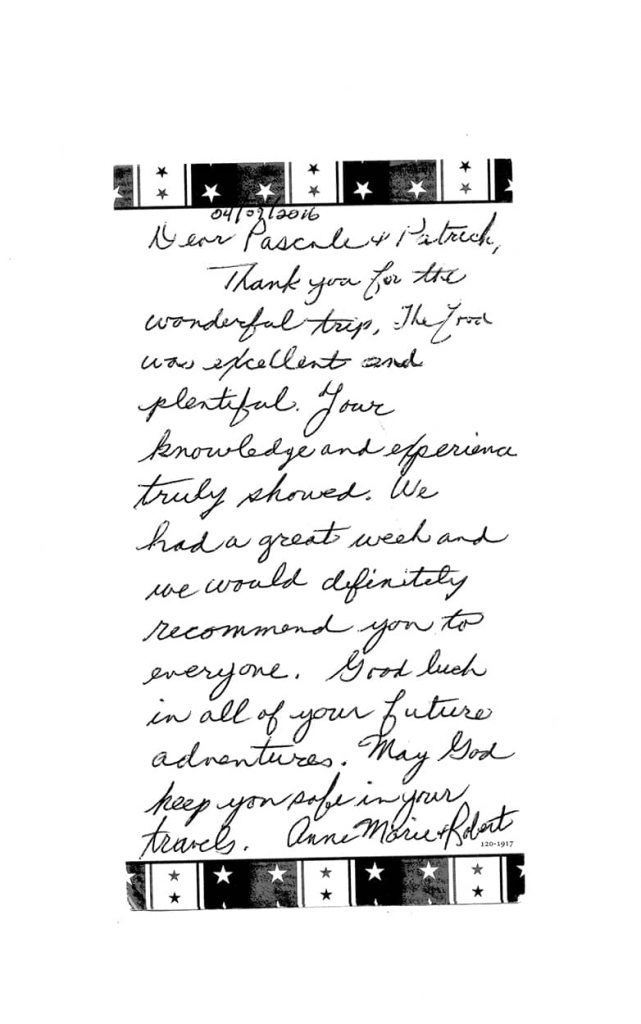 04/02/2016
Dear Pascale & Patrick,
Thank you for the
wonderful trip, The food
was excellent and
plentiful. Your
knowledge and experience
truly showed. We
had a great week and
we would definitely
recommend you to
everyone. Good luck
in all of your future
adventures. May God
keep you safe in your
travels. Anne Marie & Robert
120-1917